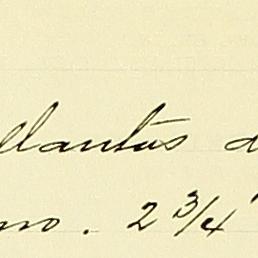 llantus d
no. 2 3/4"